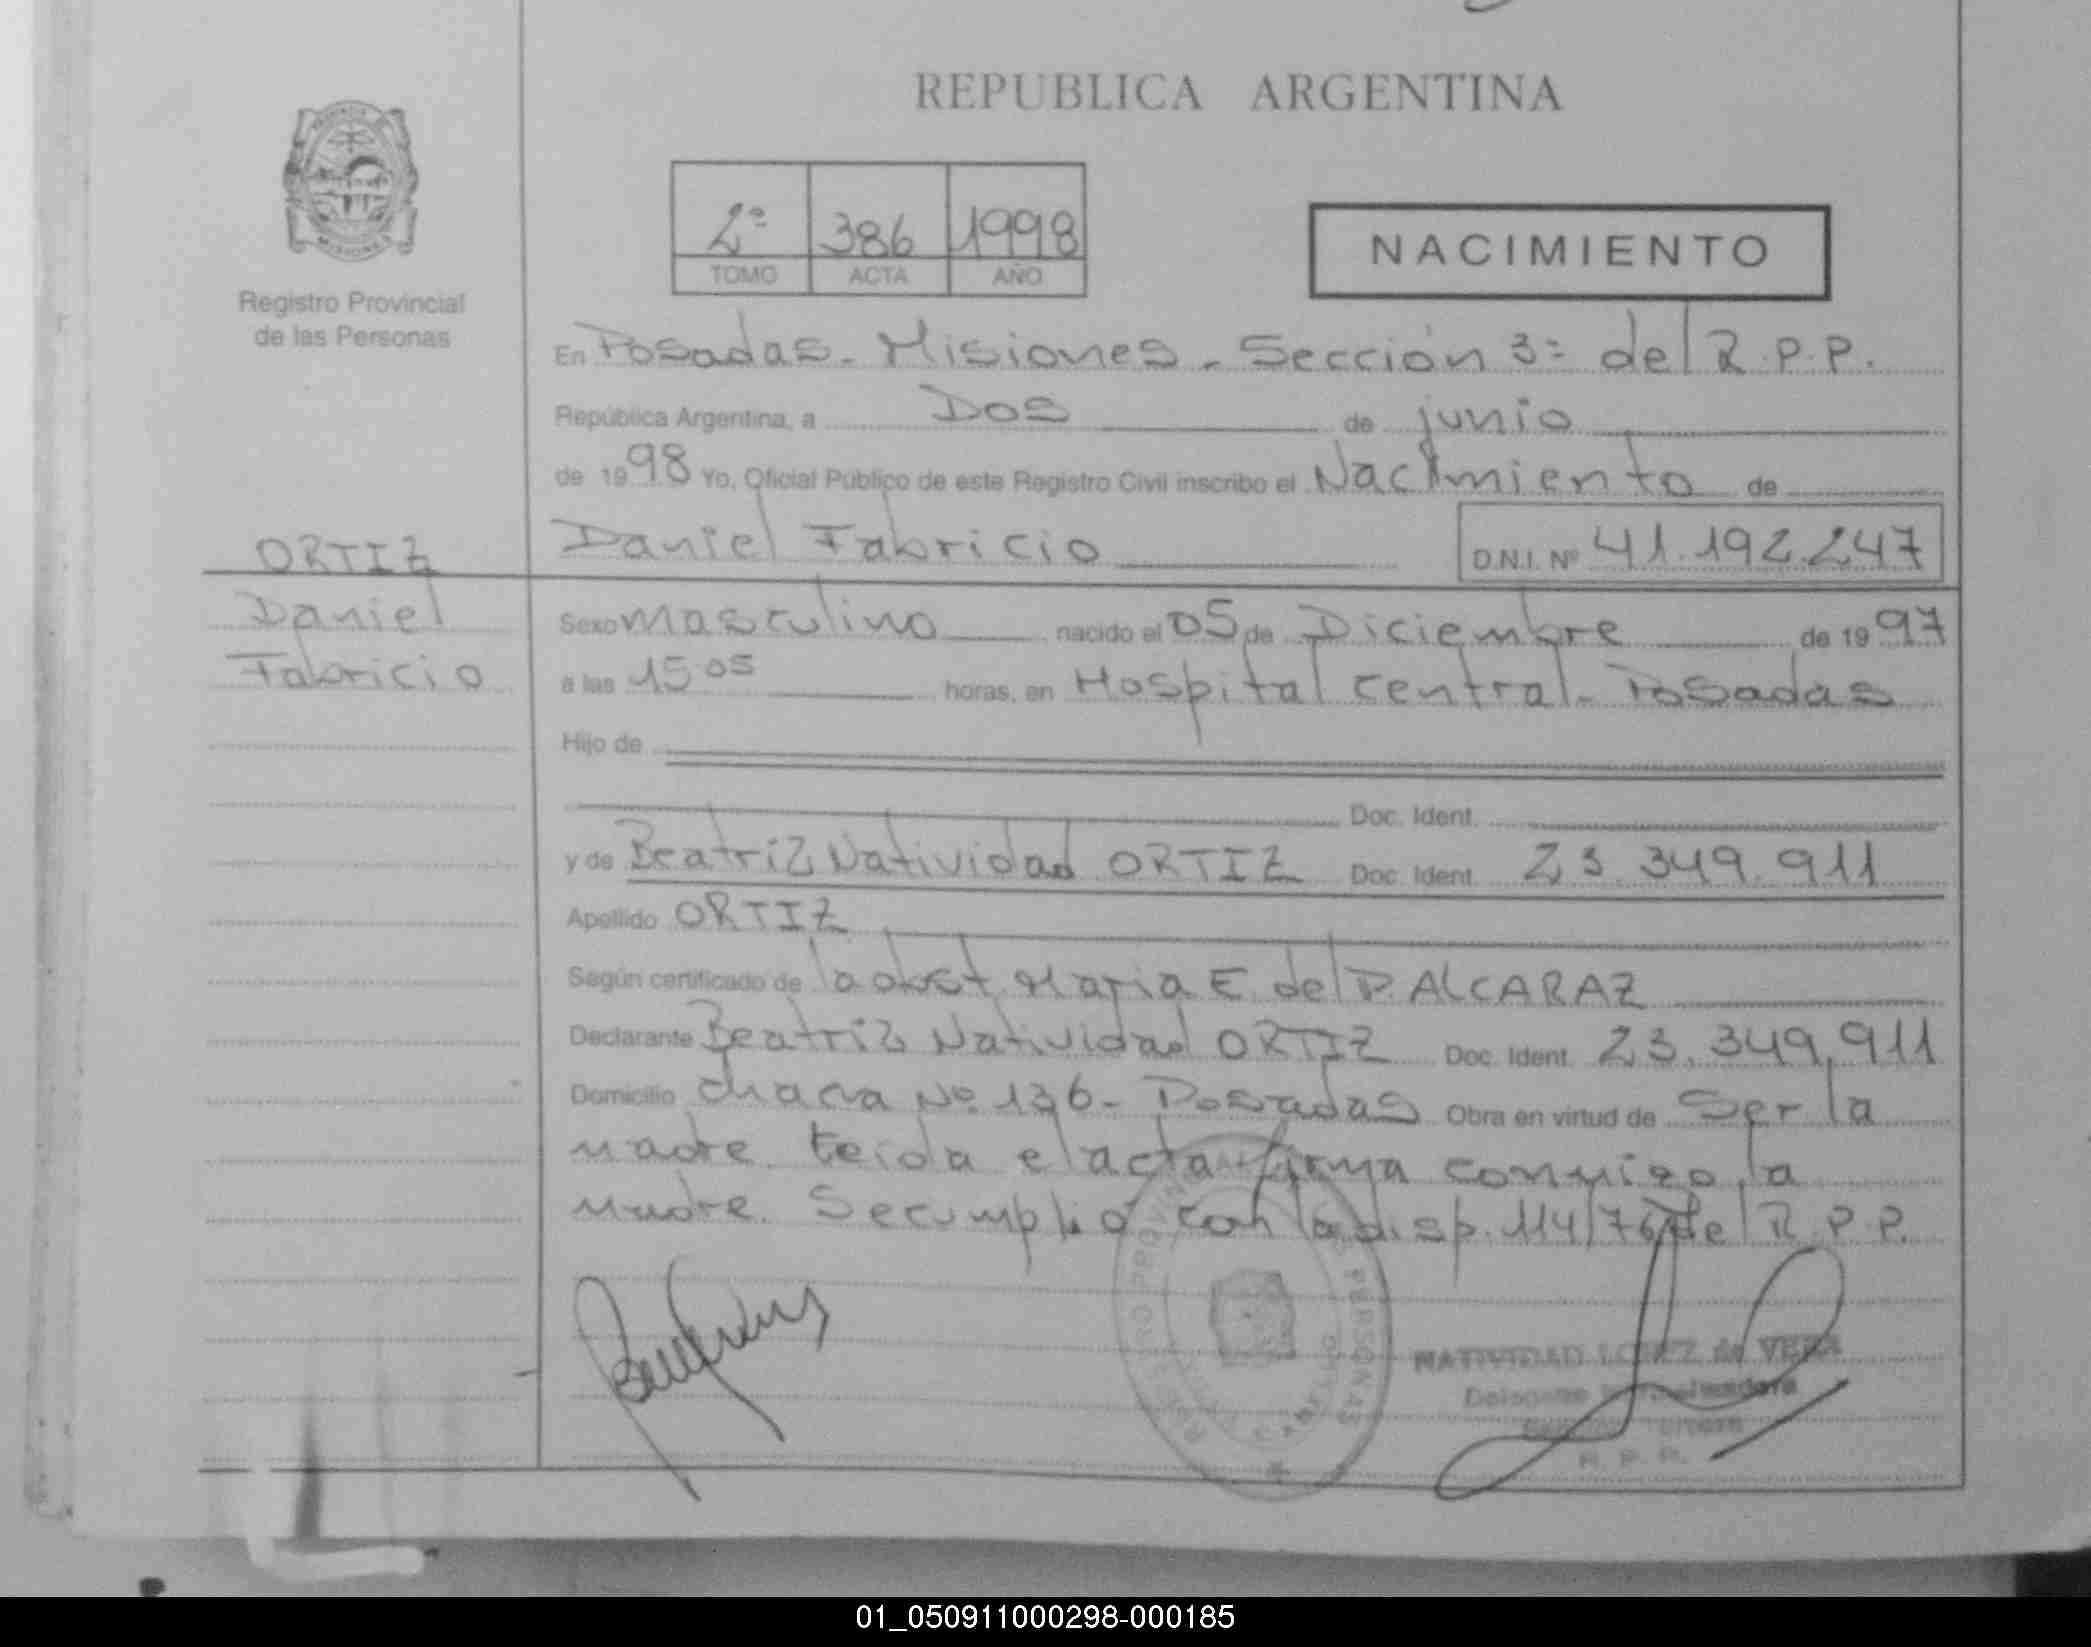 REPUBLICA ARGENTINA
2º 386 1998
TOMO ACTA AÑO
NACIMIENTO
PROVINCIA DE
MISIONES
Registro Provincial
de las Personas
En Posadas - Misiones - Sección 3º del R.P.P.
República Argentina, a Dos de junio
de 1998 Yo, Oficial Público de este Registro Civil inscribo el Nacimiento de
Daniel Fabricio D.N.I. Nº 41.192.247
ORTIZ
Daniel
Fabricio
Sexo masculino nacido el 05 de Diciembre de 1997
a las 15 05 horas, en Hospital central - Posadas
Hijo de
Doc. Ident.
y de Beatriz Natividad ORTIZ Doc. Ident. 23.349.911
Apellido ORTIZ
Según certificado de la obst. Maria E. del P. ALCARAZ
Declarante Beatriz Natividad ORTIZ Doc. Ident. 23.349.911
Domicilio chacra Nº 136 - Posadas Obra en virtud de Ser la
madre. Leida el acta firma conmigo la
madre. Se cumplió con la disp. 114/76 del R.P.P.
NATIVIDAD LOPEZ de VERA
R. P. P.
01_050911000298-000185